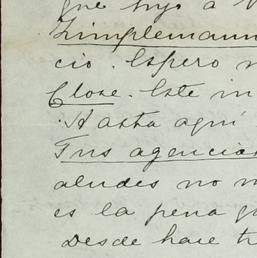 que hijo a
Zimplemann
cio. Espero
Close. Este in
Hasta aquí
Tus agencias
aludes no
es la pena
Desde hace